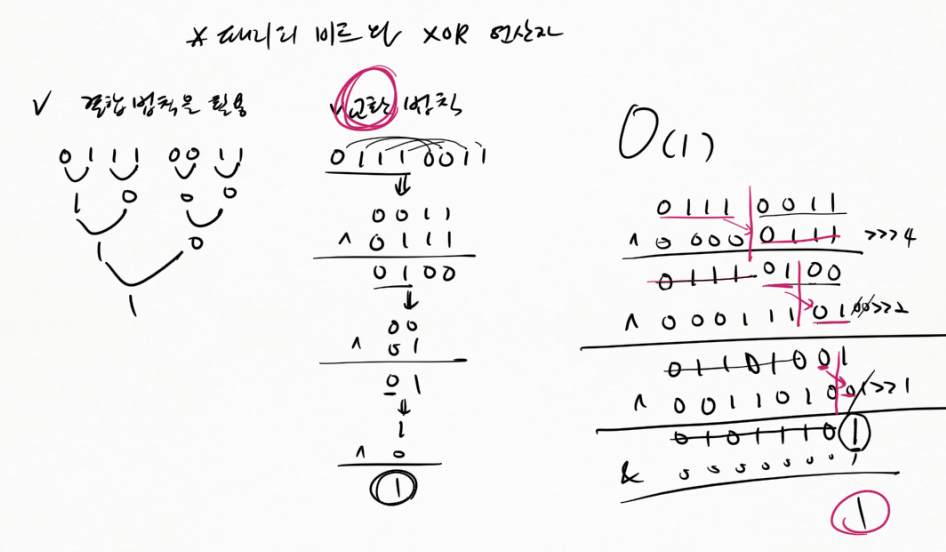 * 패리티 비트와 XOR 연산자
✓ 결합법칙을 활용
0 1 1 1 0 0 1 1
1 0 0 0
1 0
1
✓ 교환 법칙
0 1 1 1 0 0 1 1
0 0 1 1
^ 0 1 1 1
0 1 0 0
0 0
^ 0 1
0 1
1
^ 0
1
O(1)
0 1 1 1 0 0 1 1
^ 0 0 0 0 0 1 1 1 >>> 4
0 1 1 1 0 1 0 0
^ 0 0 0 1 1 1 0 1 00 >>> 2
0 1 1 0 1 0 0 1
^ 0 0 1 1 0 1 0 0 1 >>> 1
0 1 0 1 1 1 0 1
& 0 0 0 0 0 0 0 1
1